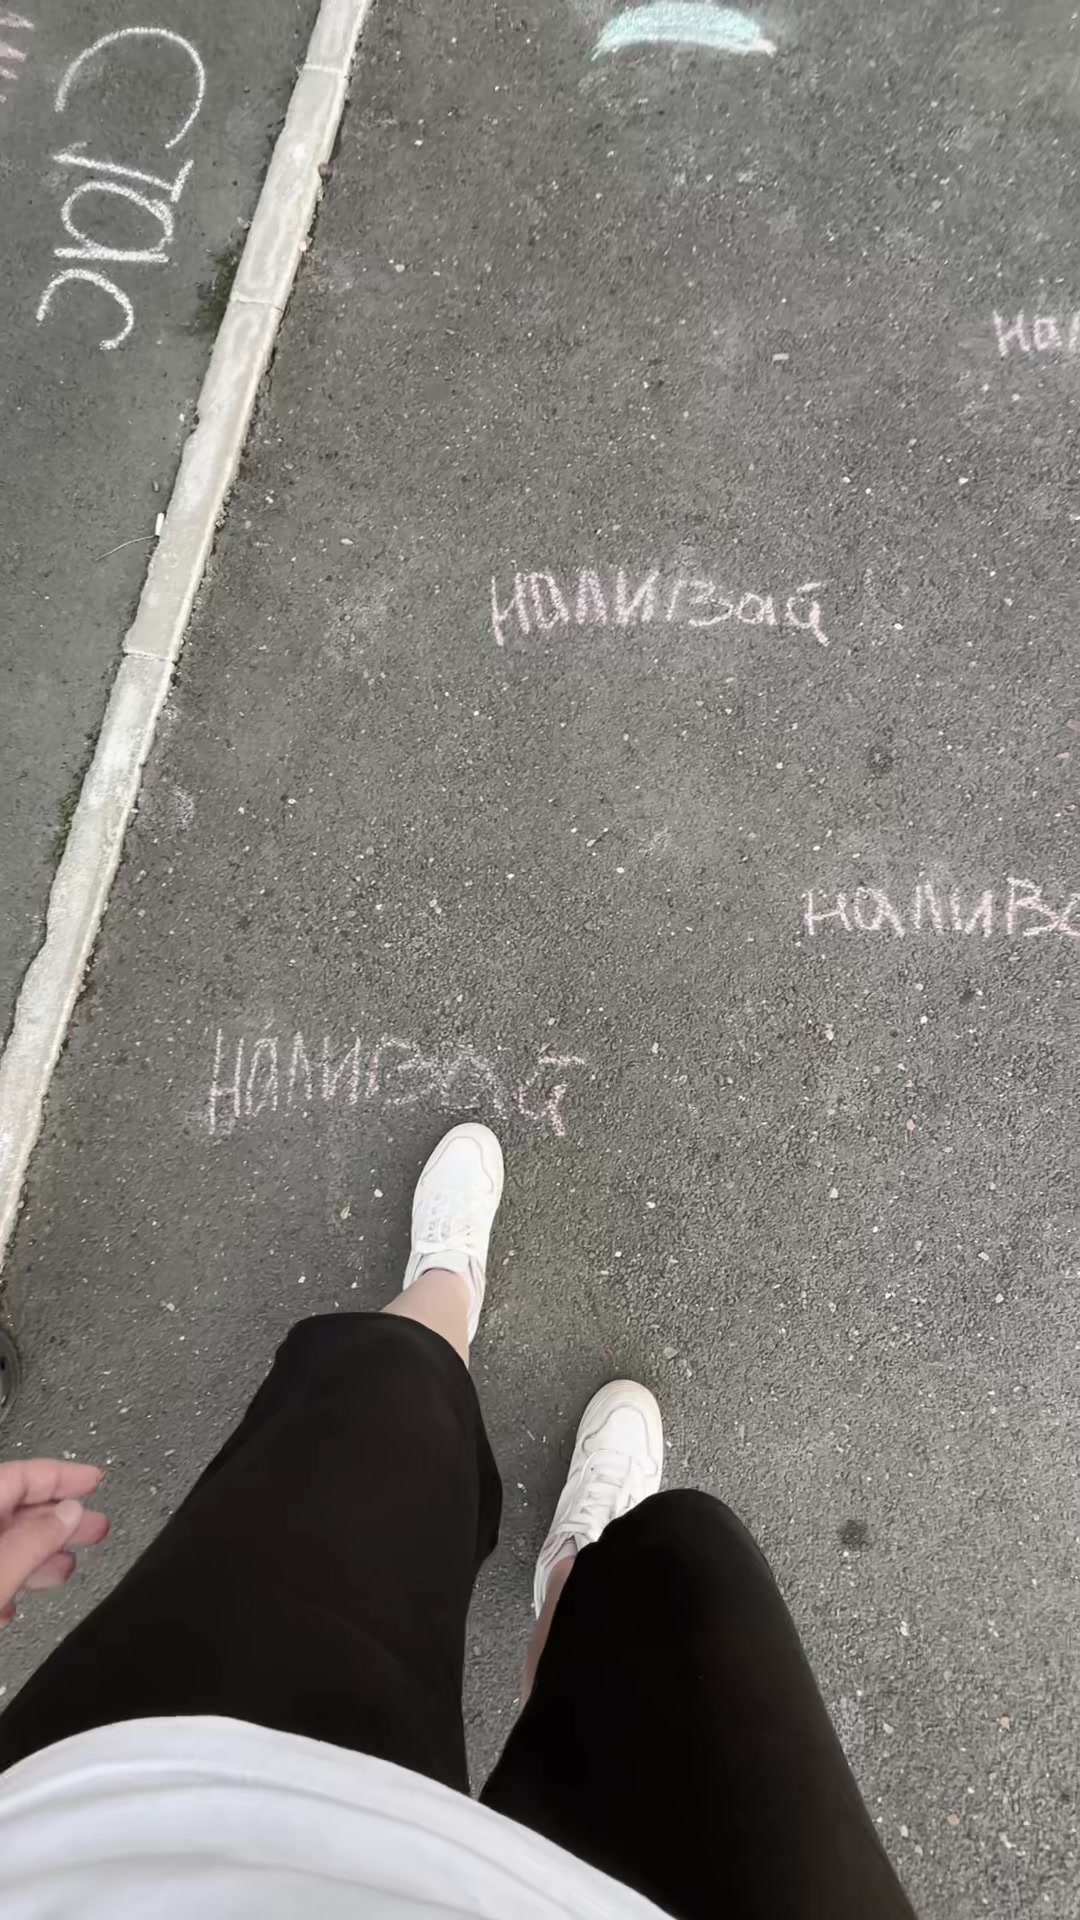 Стас
нал
наливай
налива
Наливай